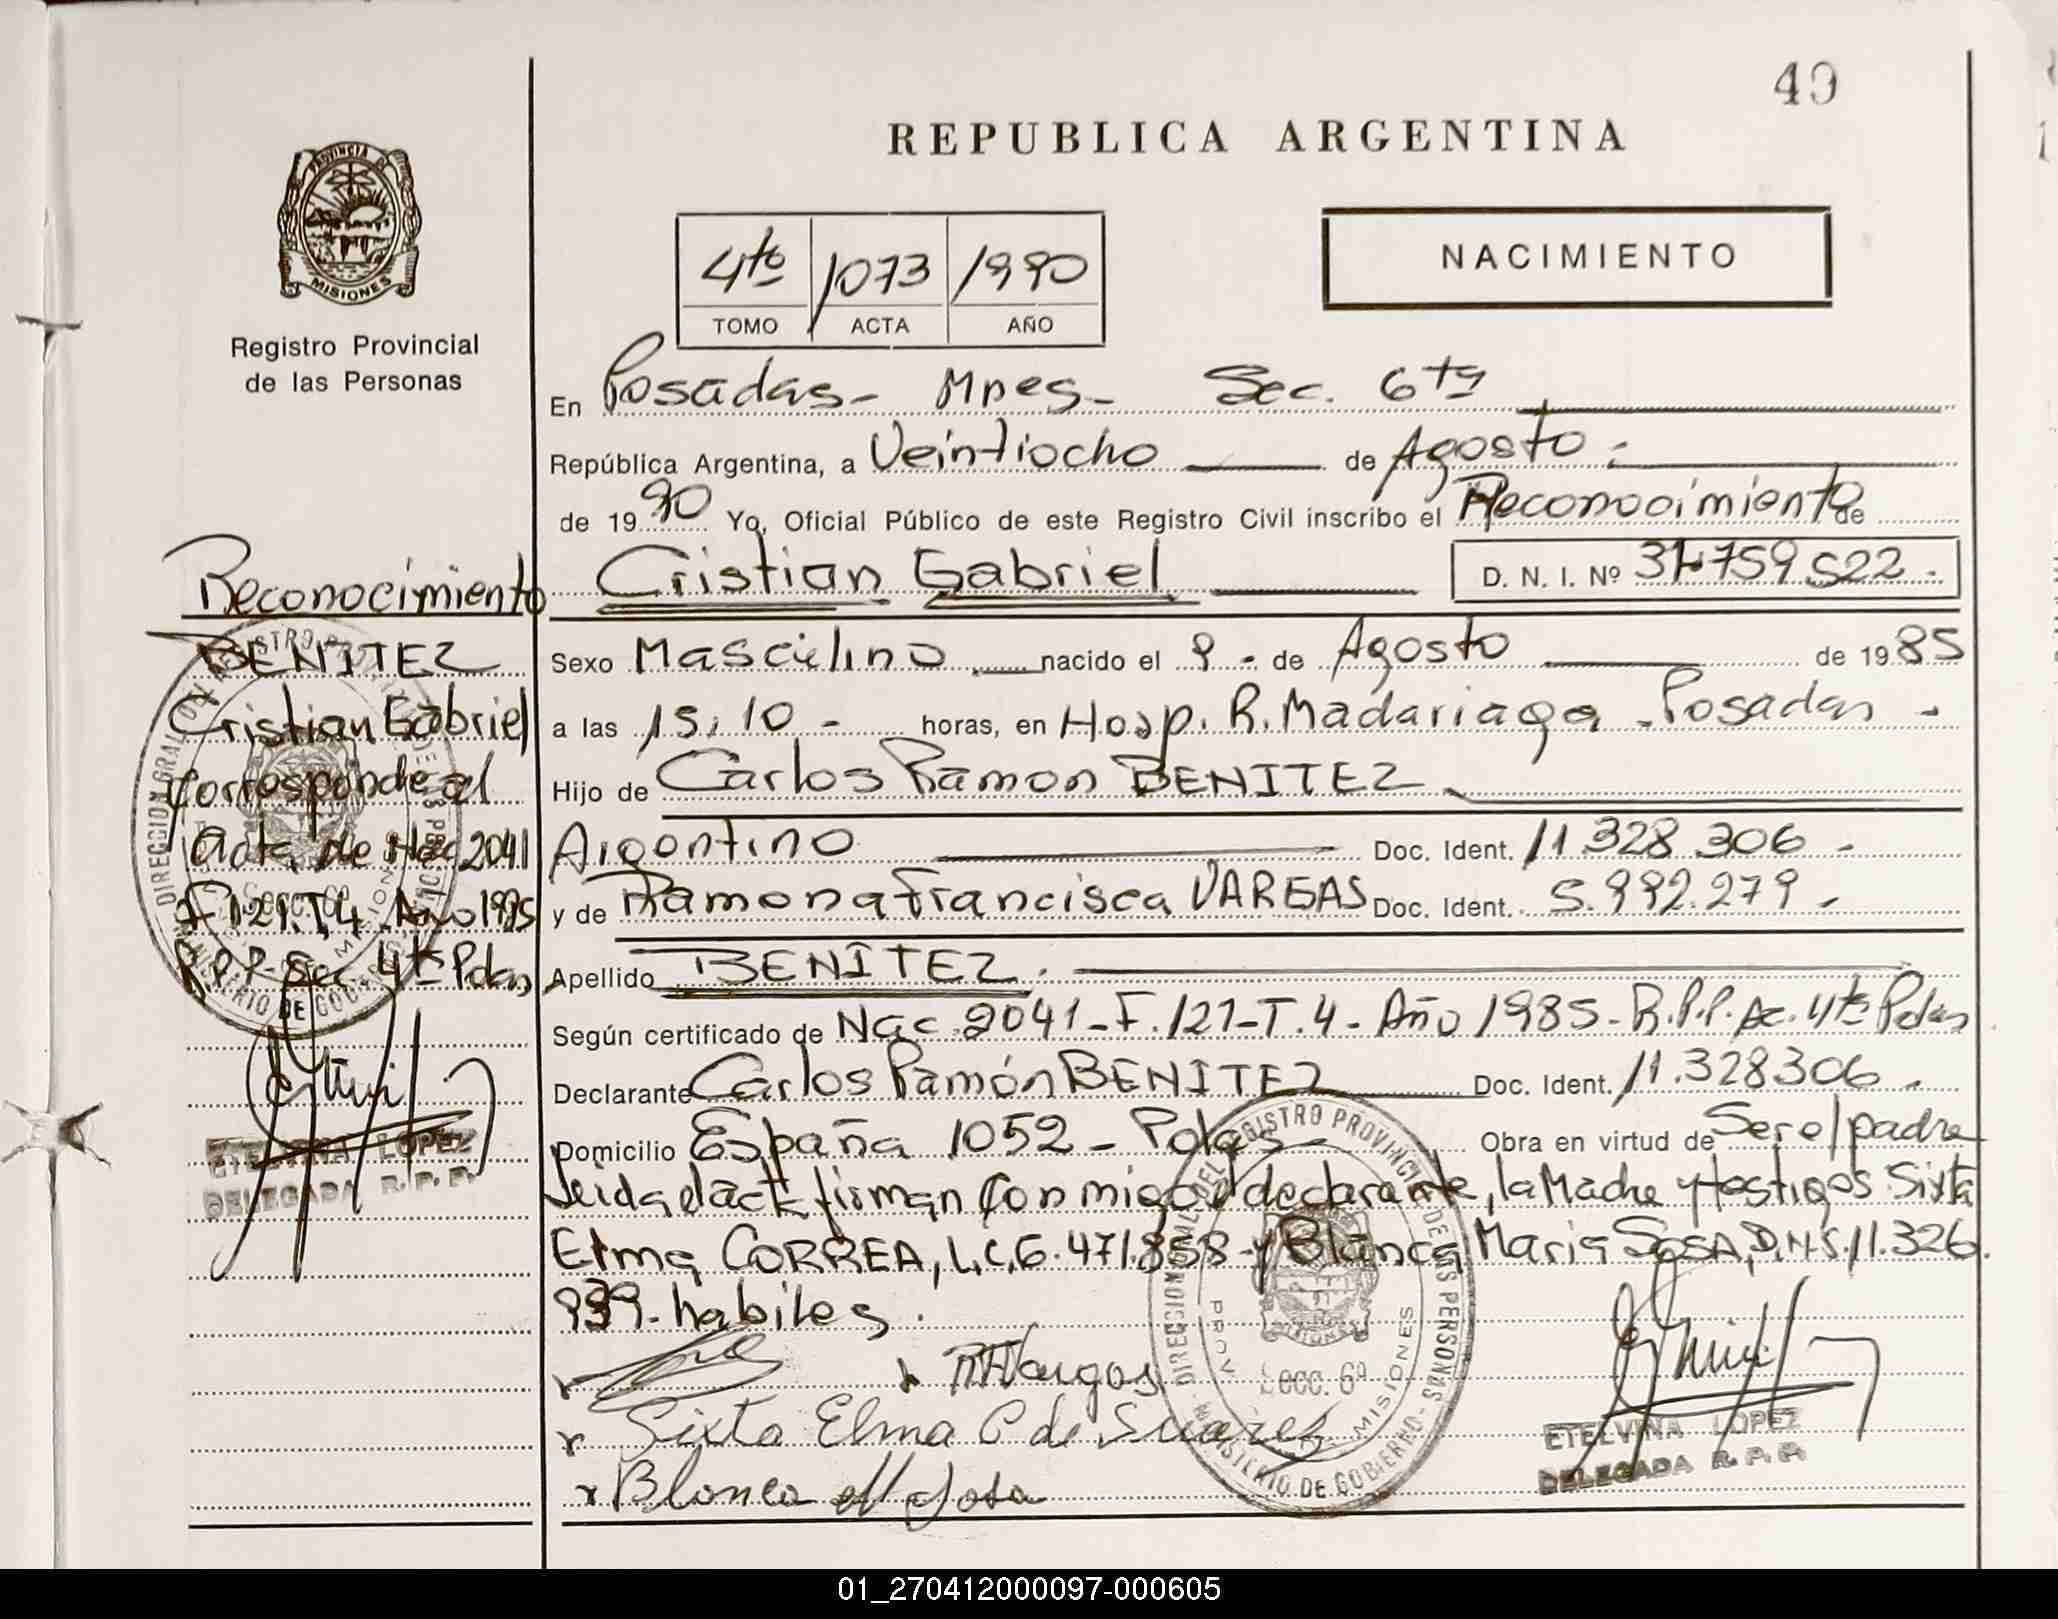 49
REPUBLICA ARGENTINA
PROVINCIA DE
MISIONES
Registro Provincial
de las Personas
4to 1073 1990
TOMO ACTA AÑO
NACIMIENTO
En Posadas - Mnes - Sec. 6ta
República Argentina, a Veintiocho de Agosto.
de 1990 Yo, Oficial Público de este Registro Civil inscribo el Reconocimiento de
Cristian Gabriel D. N. I. Nº 31.759.522.
Sexo Masculino nacido el 9 - de Agosto de 1985
a las 15,10 - horas, en Hosp. R. Madariaga - Posadas -
Hijo de Carlos Ramon BENITEZ
Argentino Doc. Ident. 11.328.306 -
y de Ramona Francisca VARGAS Doc. Ident. 5.992.279 -
Apellido BENITEZ.
Según certificado de Nac. 2041 - F. 121 - T. 4 - Año 1985 - R.P.P. Sec. 4ta Pdas
Declarante Carlos Ramón BENITEZ Doc. Ident. 11.328306.
Domicilio España 1052 - Pdas - Obra en virtud de Ser el padre
Leida el acta firman conmigo el declarante, la Madre y testigos Sixta
Elma CORREA, L.C. 6.471.858 y Blanca Maria SOSA, D.N.I. 11.326.
939 - habiles.
Sixta Elma C de Suarez
Blanca M Sosa
ETELVINA LOPEZ
DELEGADA R. P. P.
DIRECCION GRAL. DEL REGISTRO PROVINCIAL DE LAS PERSONAS - MINISTERIO DE GOBIERNO -
PROV. MISIONES
Secc. 6ª
Reconocimiento
BENITEZ
Cristian Gabriel
Corresponde al
Acta de Nac 2041
F 121. T, 4. Año 1985
R.P.P. Sec 4ta Pdas
ETELVINA LOPEZ
DELEGADA R. P. P.
01_270412000097-000605